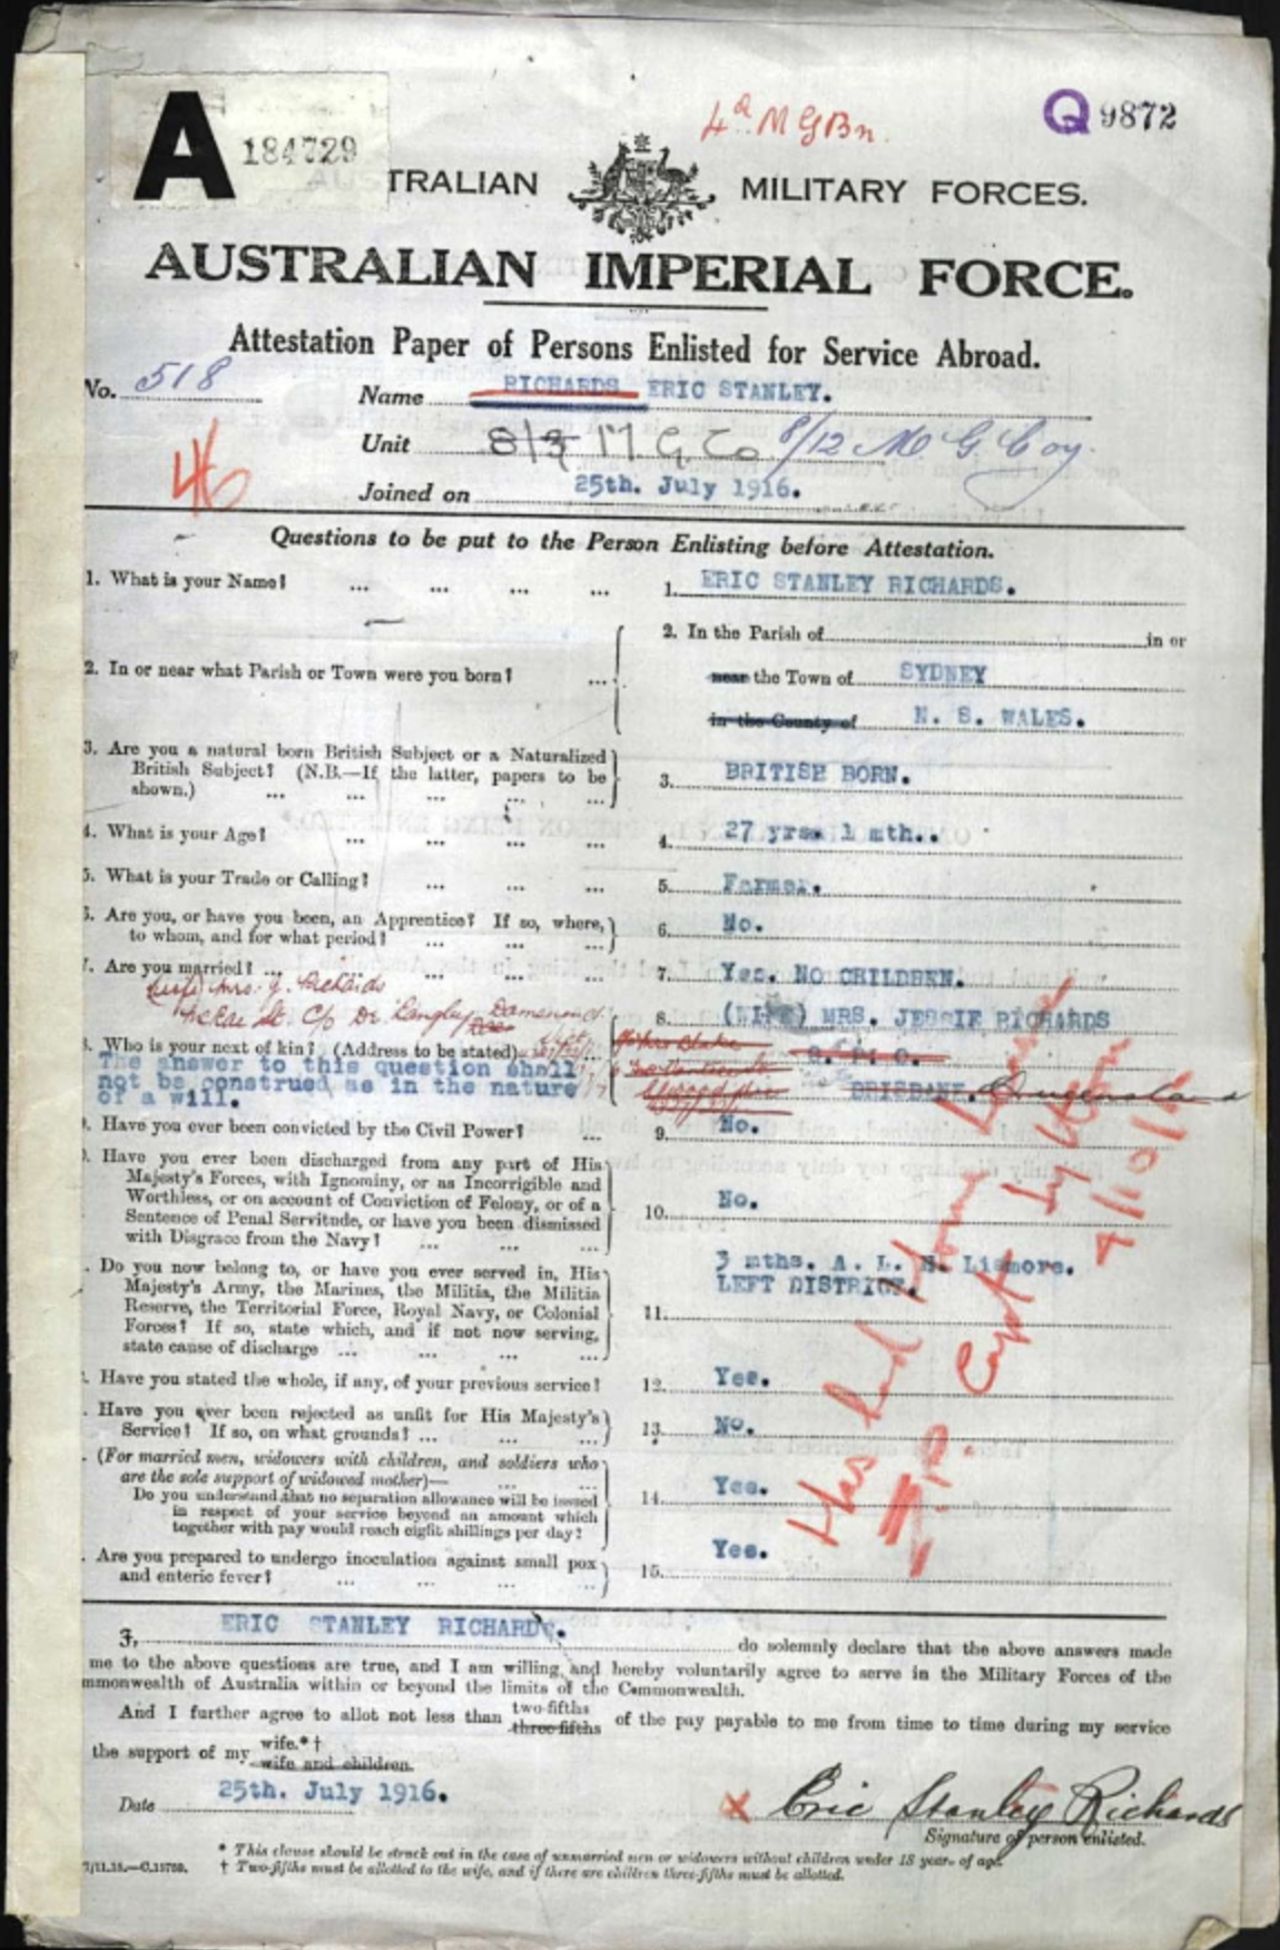 4th M G Bn.
Q 9872
A 184729
AUSTRALIAN MILITARY FORCES.
AUSTRALIAN IMPERIAL FORCE.
Attestation Paper of Persons Enlisted for Service Abroad.
No. 518
Name RICHARDS ERIC STANLEY.
46
Unit 8/3 M. G. Co 8/12 M G Coy.
Joined on 25th. July 1916.
Questions to be put to the Person Enlisting before Attestation.
1. What is your Name? ... ... ... ... 1. ERIC STANLEY RICHARDS.
2. In the Parish of in or
2. In or near what Parish or Town were you born? ... near the Town of SYDNEY
in the County of N. S. WALES.
3. Are you a natural born British Subject or a Naturalized
British Subject? (N.B.—If the latter, papers to be 3. BRITISH BORN.
shown.) ... ... ... ... ...
4. What is your Age? ... ... ... ... 4. 27 yrs. 1 mth..
5. What is your Trade or Calling? ... ... ... 5. Farmer.
6. Are you, or have you been, an Apprentice? If so, where,
to whom, and for what period? ... ... ... 6. No.
7. Are you married? ... ... ... ... 7. Yes. NO CHILDREN.
Mrs. J. Richards
St. C/o Dr. Langley
8. (WIFE) MRS. JESSIE RICHARDS
8. Who is your next of kin? (Address to be stated) G. P. O.
The answer to this question shall
not be construed as in the nature BRISBANE. Queensland
of a will.
9. Have you ever been convicted by the Civil Power? ... 9. No.
. Have you ever been discharged from any part of His
Majesty's Forces, with Ignominy, or as Incorrigible and
Worthless, or on account of Conviction of Felony, or of a 10. No.
Sentence of Penal Servitude, or have you been dismissed
with Disgrace from the Navy? ... ... ...
. Do you now belong to, or have you ever served in, His 3 mths. A. L. H. Lismore.
Majesty's Army, the Marines, the Militia, the Militia LEFT DISTRICT.
Reserve, the Territorial Force, Royal Navy, or Colonial 11.
Forces? If so, state which, and if not now serving,
state cause of discharge ... ... ... ...
. Have you stated the whole, if any, of your previous service? 12. Yes.
. Have you ever been rejected as unfit for His Majesty's
Service? If so, on what grounds? ... ... ... 13. No.
. (For married men, widowers with children, and soldiers who
are the sole support of widowed mother)— ... ...
Do you understand that no separation allowance will be issued 14. Yes.
in respect of your service beyond an amount which
together with pay would reach eight shillings per day?
. Are you prepared to undergo inoculation against small pox 15. Yes.
and enteric fever? ... ... ... ...
Has had Home Leave
Capt Lytton
9/10/16
I, ERIC STANLEY RICHARDS. do solemnly declare that the above answers made
me to the above questions are true, and I am willing and hereby voluntarily agree to serve in the Military Forces of the
mmonwealth of Australia within or beyond the limits of the Commonwealth.
And I further agree to allot not less than two-fifths three-fifths of the pay payable to me from time to time during my service
the support of my wife.*† wife and children.
Date 25th. July 1916.
x Eric Stanley Richards
Signature of person enlisted.
* This clause should be struck out in the case of unmarried men or widowers without children under 18 years of age.
7/11.15.—C.15758. † Two-fifths must be allotted to the wife, and if there are children three-fifths must be allotted.